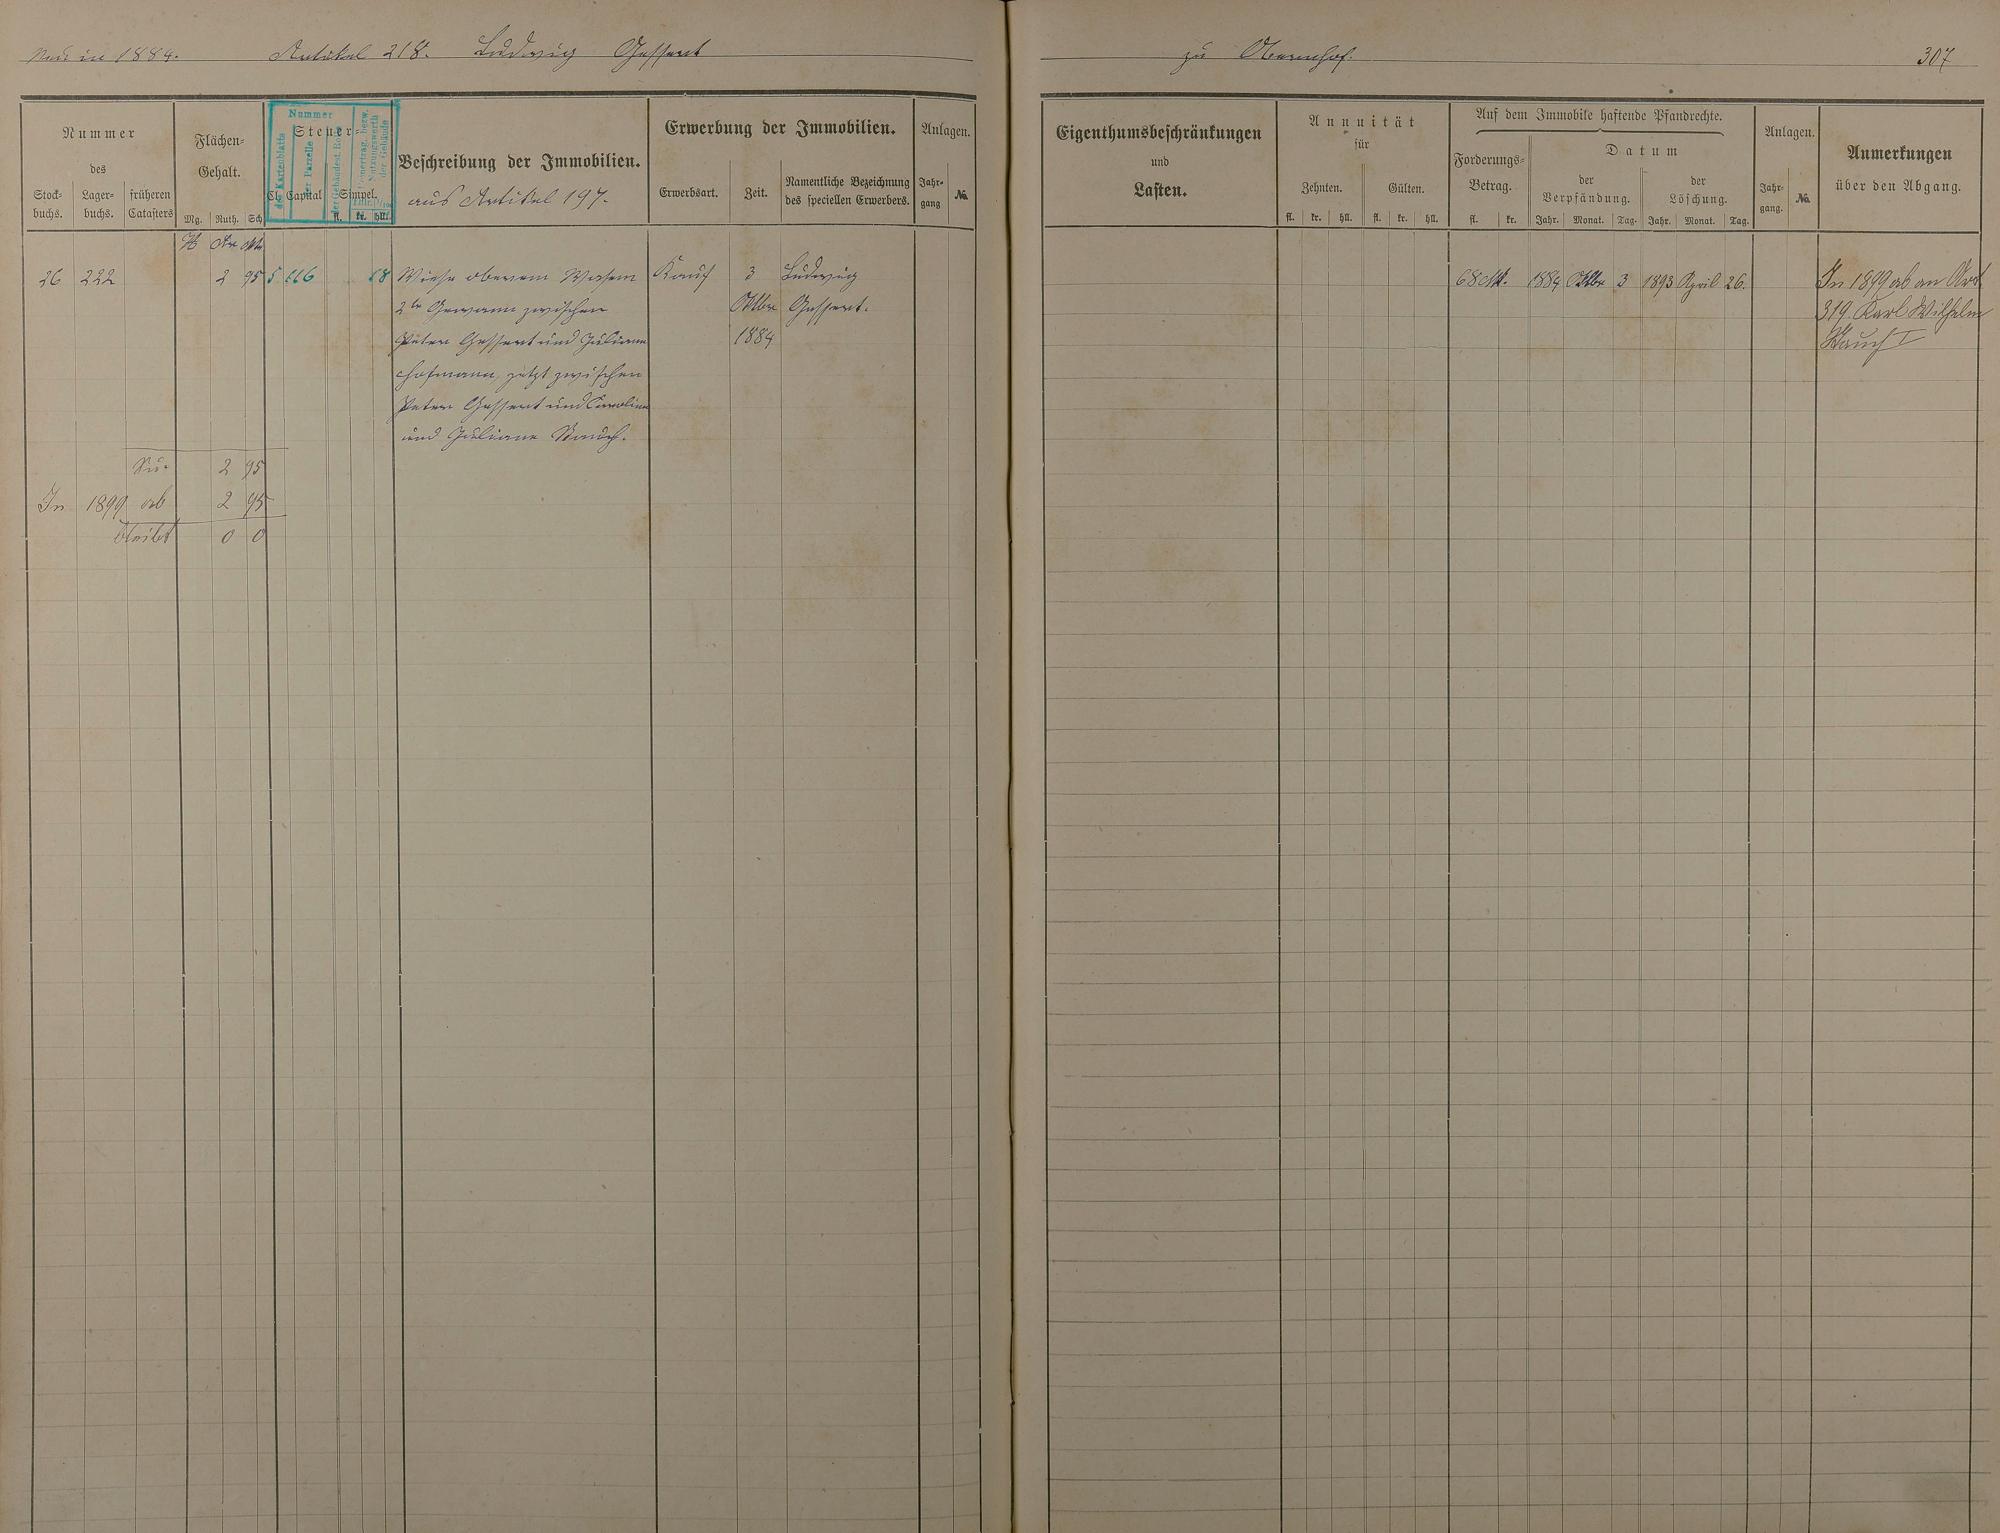 Neu in 1884. Artikel 218. Ludwig Gessert
zu Obernhof.
307
Nummer
des
Stock-
buchs.
Lager-
buchs.
früheren
Catasters
Flächen-
Gehalt.
Mg. Ruth. Sch
Nummer
des Kartenblatts
der Parzelle
Steuer-
Cl. Capital
Simpel.
fl. kr. hll.
Beschreibung der Immobilien.
aus Artikel 197.
Erwerbung der Immobilien.
Erwerbsart.
Zeit.
Namentliche Bezeichnung
des speciellen Erwerbers.
Anlagen.
Jahr-
gang
No.
Eigenthumsbeschränkungen
und
Lasten.
Annuität
für
Zehnten. Gülten.
fl. kr. hll. fl. kr. hll.
Auf dem Immobile haftende Pfandrechte.
Forderungs-
Betrag.
fl. kr.
Datum
der
Verpfändung.
Jahr. Monat. Tag.
der
Löschung.
Jahr. Monat. Tag.
Anlagen.
Jahr-
gang.
No.
Anmerkungen
über den Abgang.
26 222 2 95 5 116 58
Wiese oberem Wasem
2te Gewann zwischen
Peter Gessert und Juliane
Hofmann, jetzt zwischen
Peter Gessert und Caroline
und Juliane Bauch.
Kauf
3
Oktbr
1884
Ludwig
Gessert.
68 Mk. 1884 Oktbr 3 1893 April 26.
In 1899 ab an Art.
319. Karl Wilhelm
Bauch I
Su. 2 95
In 1899 ab 2 95
bleibt 0 0